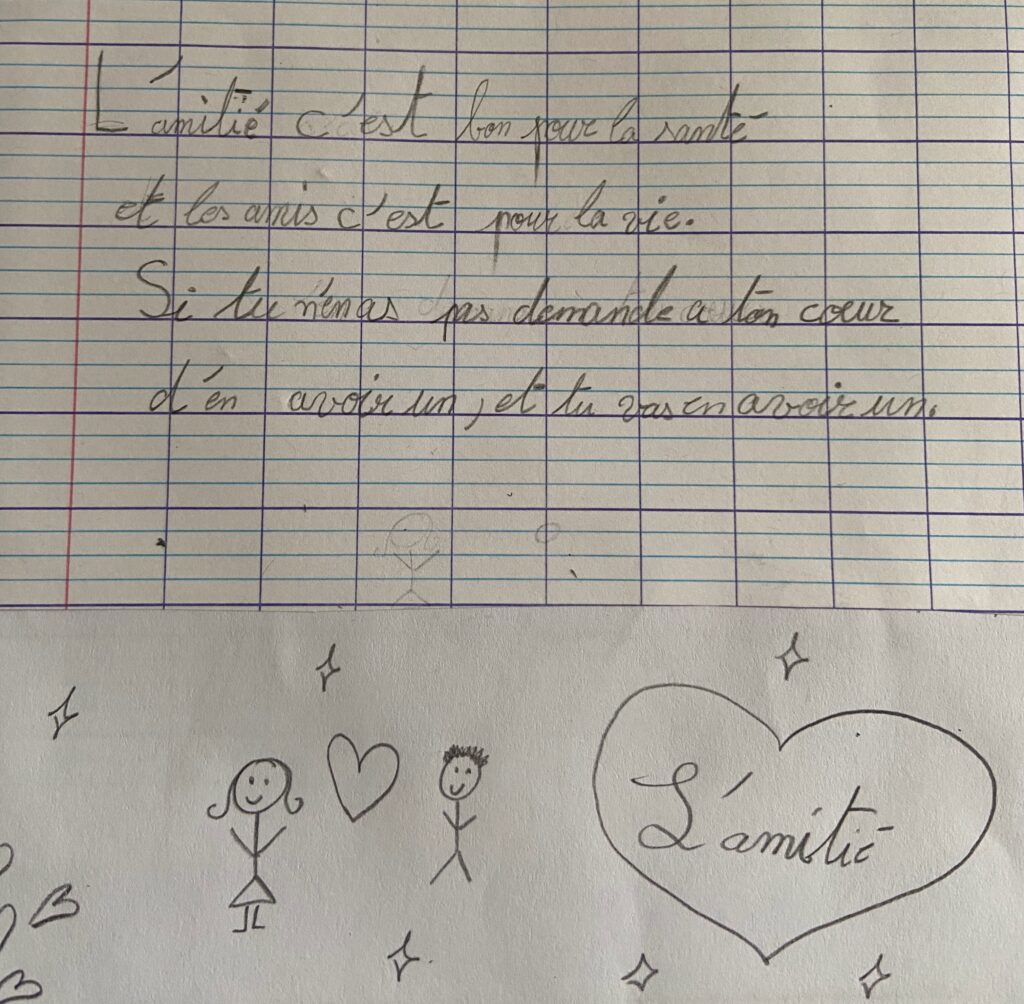 L'amitié c'est bon pour la santé
et les amis c'est pour la vie.
Si tu n'en as pas demande a ton coeur
d'en avoir un, et tu vas en avoir un.
L'amitié